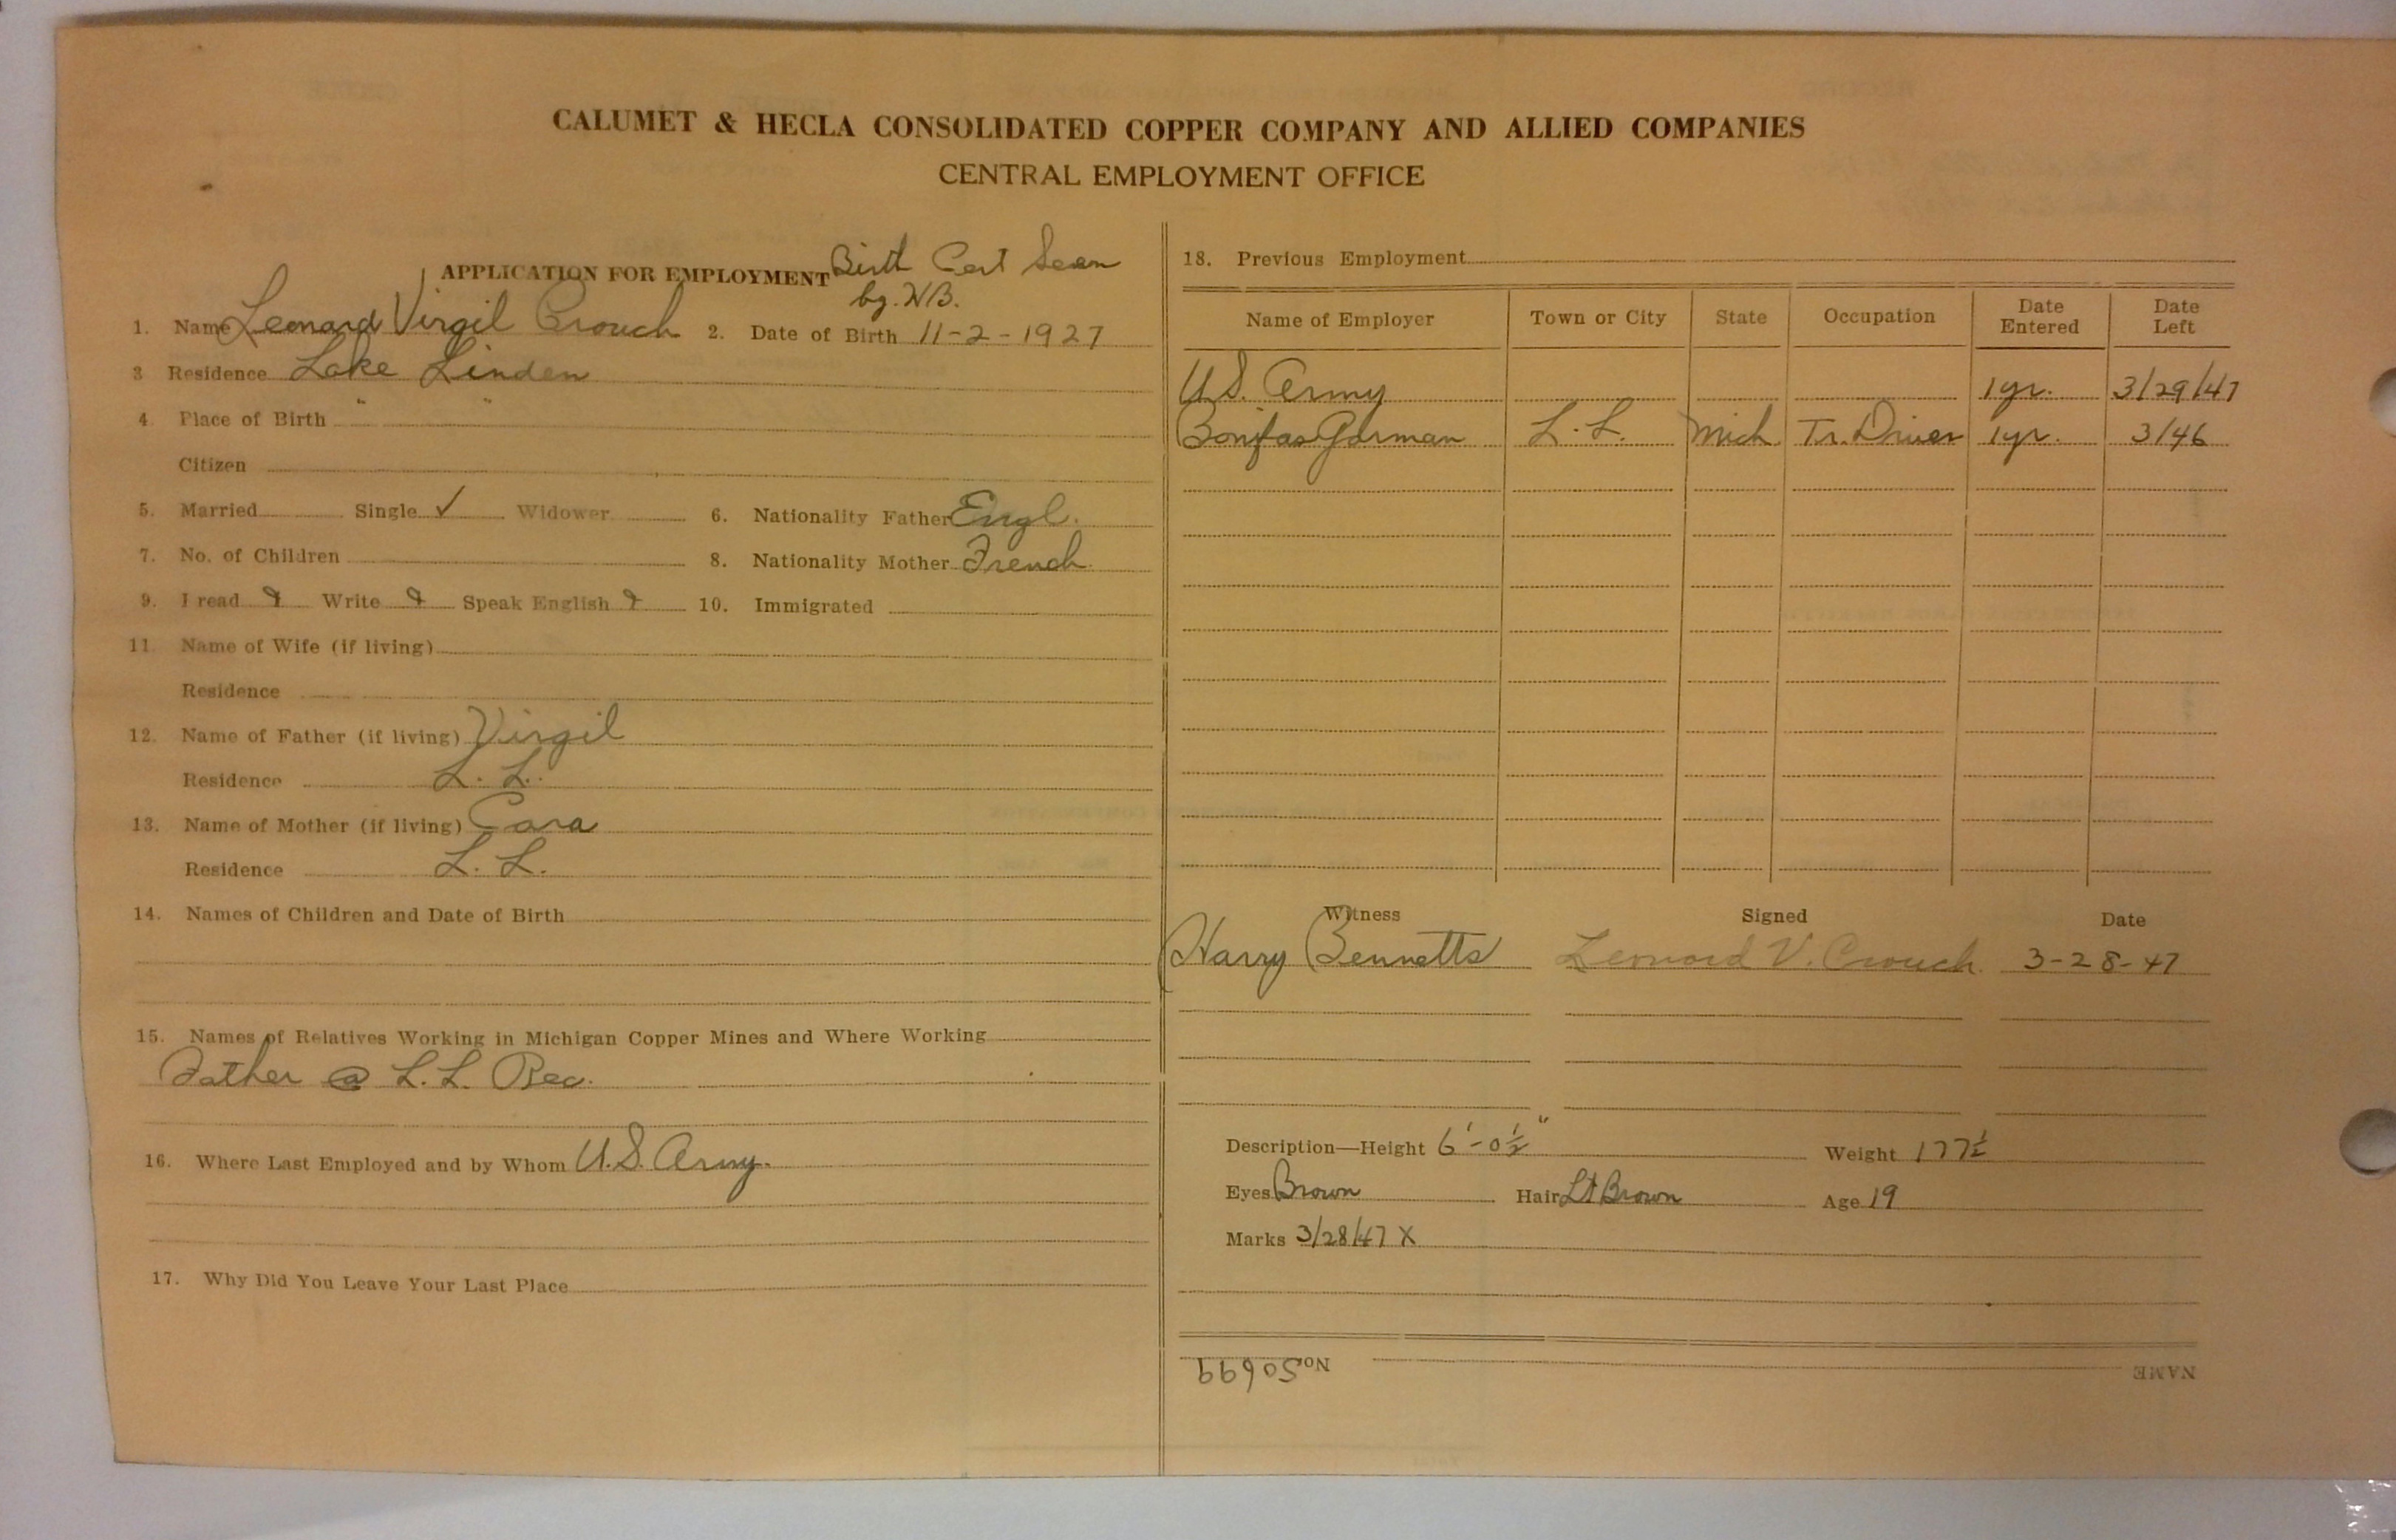 CALUMET & HECLA CONSOLIDATED COPPER COMPANY AND ALLIED COMPANIES
CENTRAL EMPLOYMENT OFFICE
APPLICATION FOR EMPLOYMENT Birth Cert Seen
by. HB.
1. Name Leonard Virgil Crouch 2. Date of Birth 11-2-1927
3 Residence Lake Linden
4. Place of Birth " "
Citizen
5. Married Single ✓ Widower 6. Nationality Father Engl.
7. No. of Children 8. Nationality Mother French
9. I read Write Speak English 10. Immigrated
11. Name of Wife (if living)
Residence
12. Name of Father (if living) Virgil
Residence L. L.
13. Name of Mother (if living) Cara
Residence L. L.
14. Names of Children and Date of Birth
15. Names of Relatives Working in Michigan Copper Mines and Where Working
Father @ L. L. Rec.
16. Where Last Employed and by Whom U.S. Army.
17. Why Did You Leave Your Last Place
18. Previous Employment
Name of Employer Town or City State Occupation Date Entered Date Left
U.S. Army 1yr. 3/29/47
Bonifas Gorman L. L. Mich Tr. Driver 1yr. 3/46
Witness Signed Date
Harry Bennetts Leonard V. Crouch 3-28-47
Description—Height 6'-0½" Weight 177½
Eyes Brown Hair Lt Brown Age 19
Marks 3/28/47 X
No. 50699 NAME